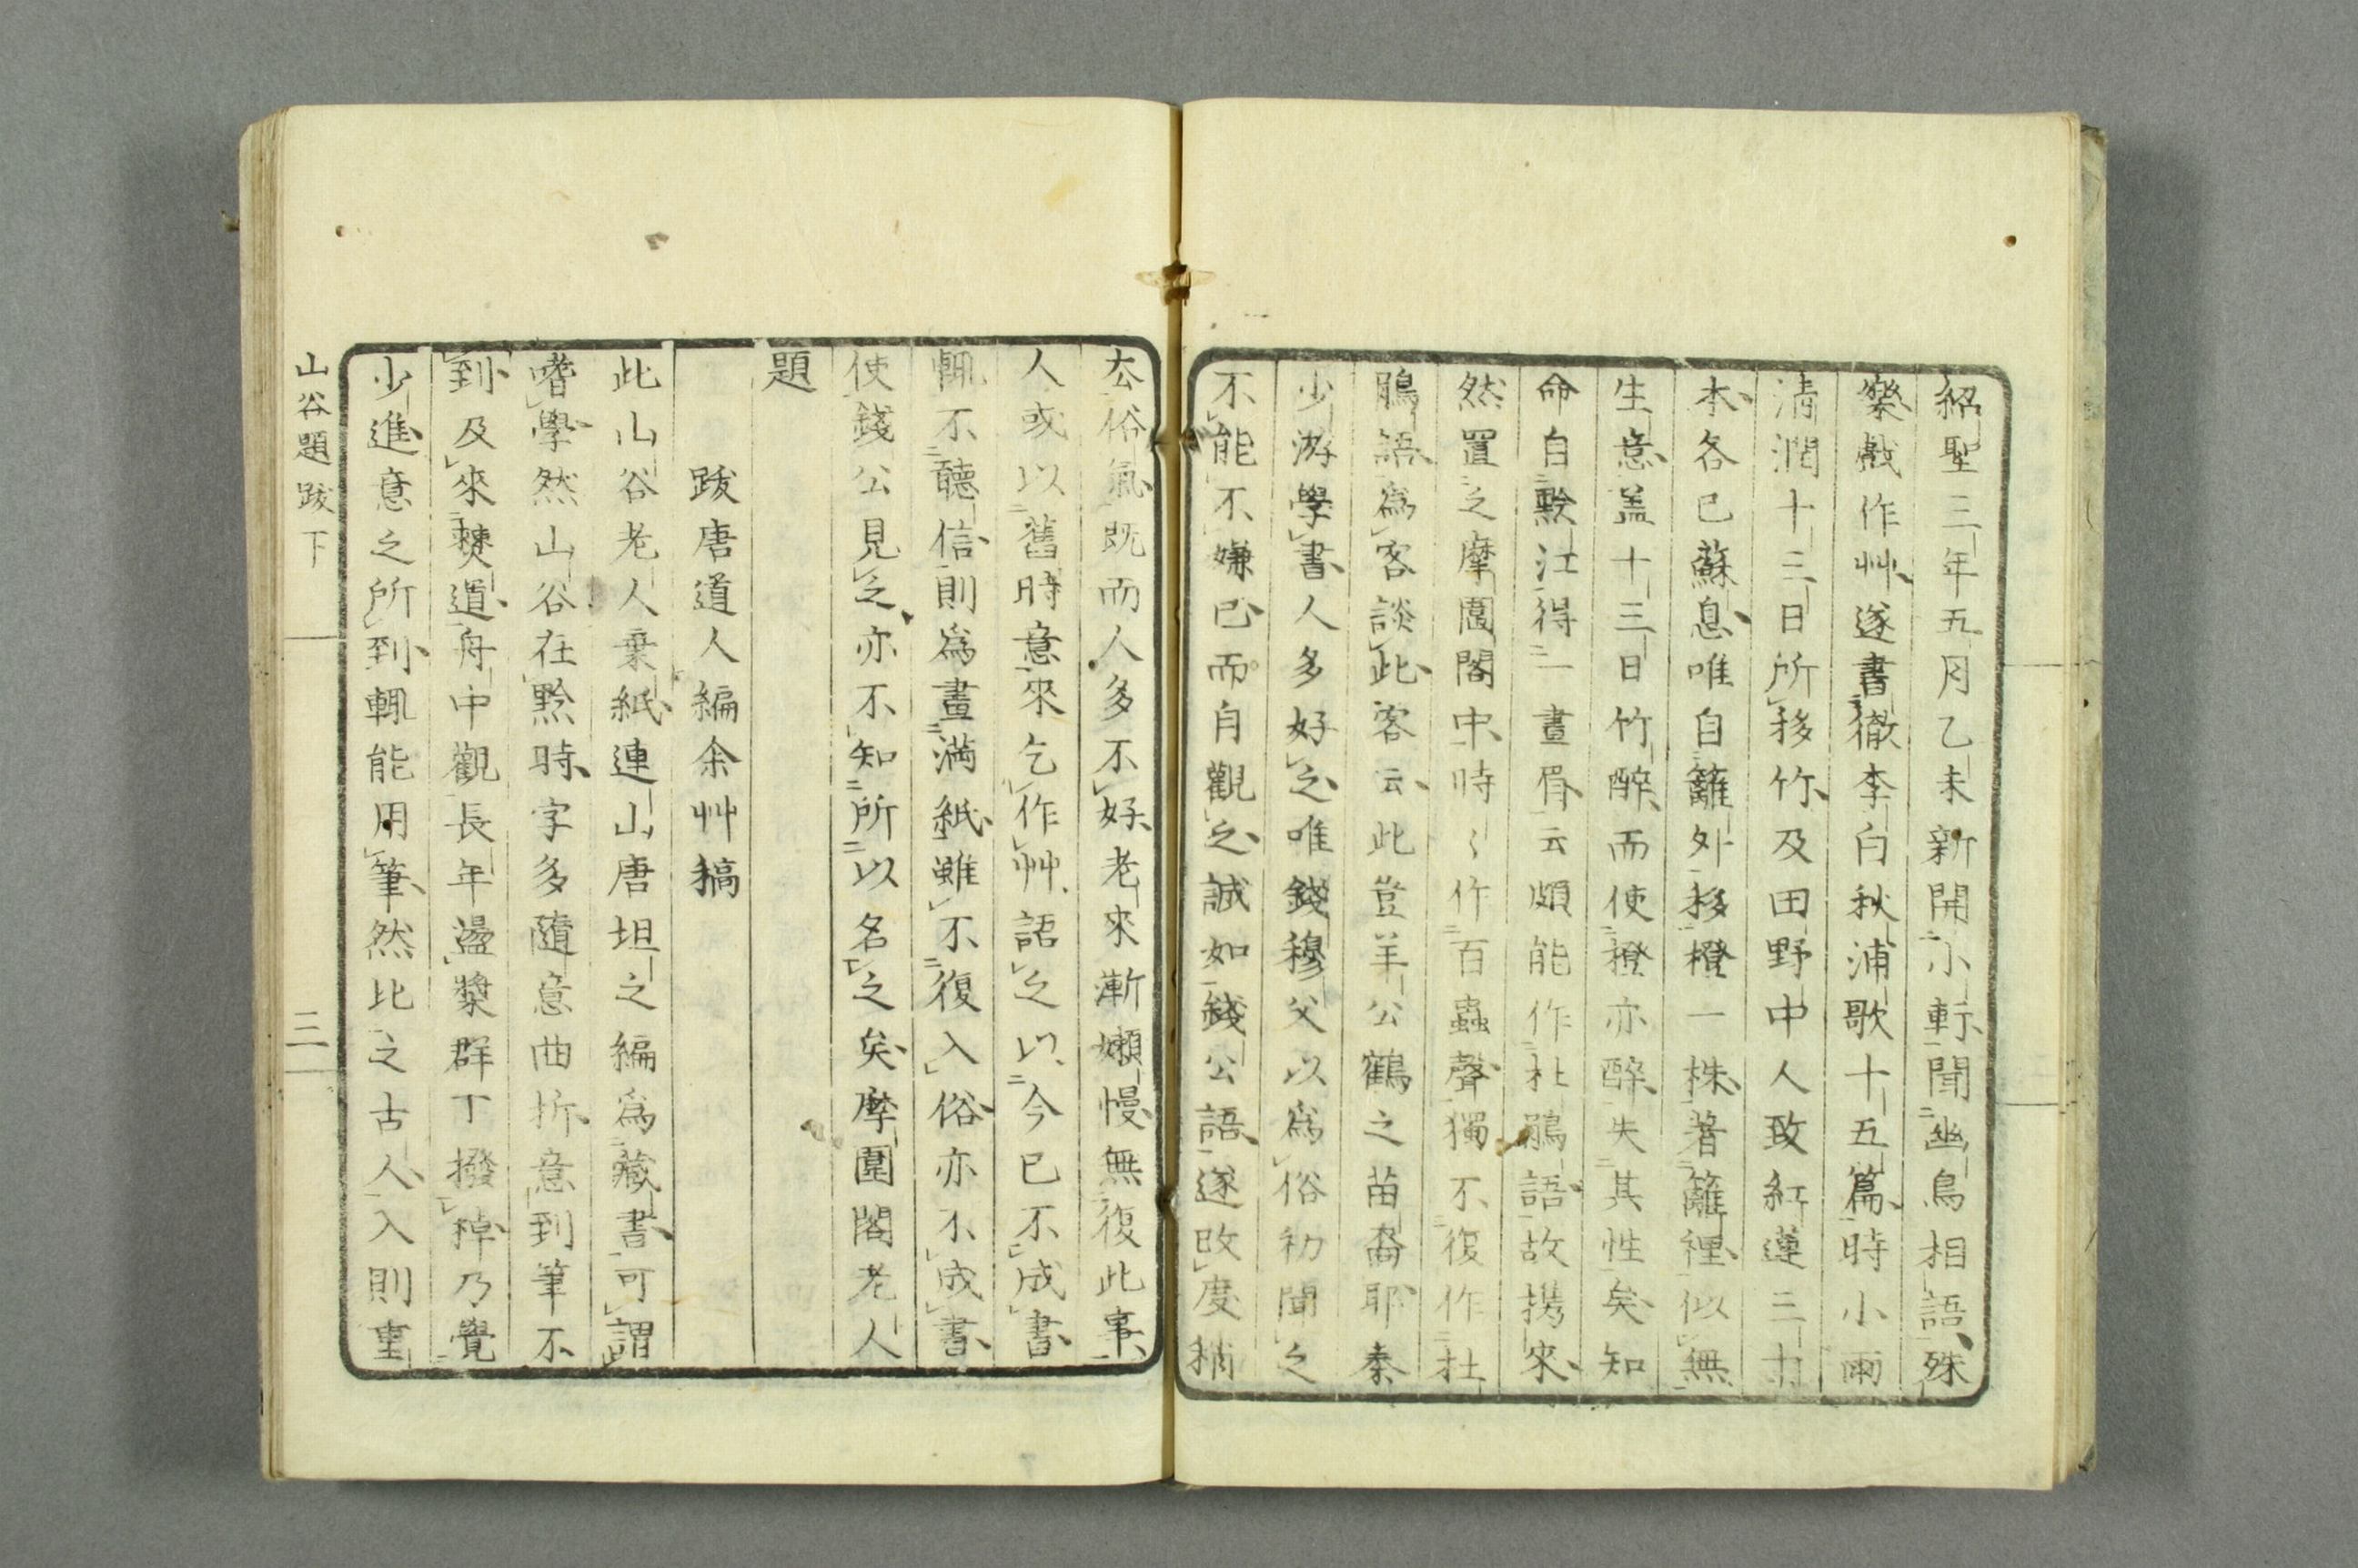 紹聖三年五月乙未新開小軒聞幽鳥相語殊
樂戯作艸遂書徹李白秋浦歌十五篇時小雨
清潤十三日所移竹及田野中人致紅蓮三十
本各已蘇息唯自籬外移橙一株著籬裡似無
生意盖十三日竹醉而使橙亦醉失其性矣知
命自黔江得一畫眉云頗能作杜鵑語故携來
然置之摩圍閣中時〻作百蟲聲獨不復作杜
鵑語爲客談此客云此豈羊公鶴之苗裔耶秦
少游學書人多好之唯錢穆父以爲俗初聞之
不能不嫌已而自觀之誠如錢公語遂改度稍
去俗氣既而人多不好老來漸嬾慢無復此事
人或以舊時意來乞作艸語之以今已不成書
輒不聽信則爲畫滿紙雖不復入俗亦不成書
使錢公見之亦不知所以名之矣摩圍閣老人
題
跋唐道人編余艸稿
此山谷老人棄紙連山唐坦之編爲藏書可謂
嗜學然山谷在黔時字多隨意曲折意到筆不
到及來僰道舟中觀長年盪槳群丁撥棹乃覺
少進意之所到輒能用筆然比之古人入則重
山谷題跋下
三